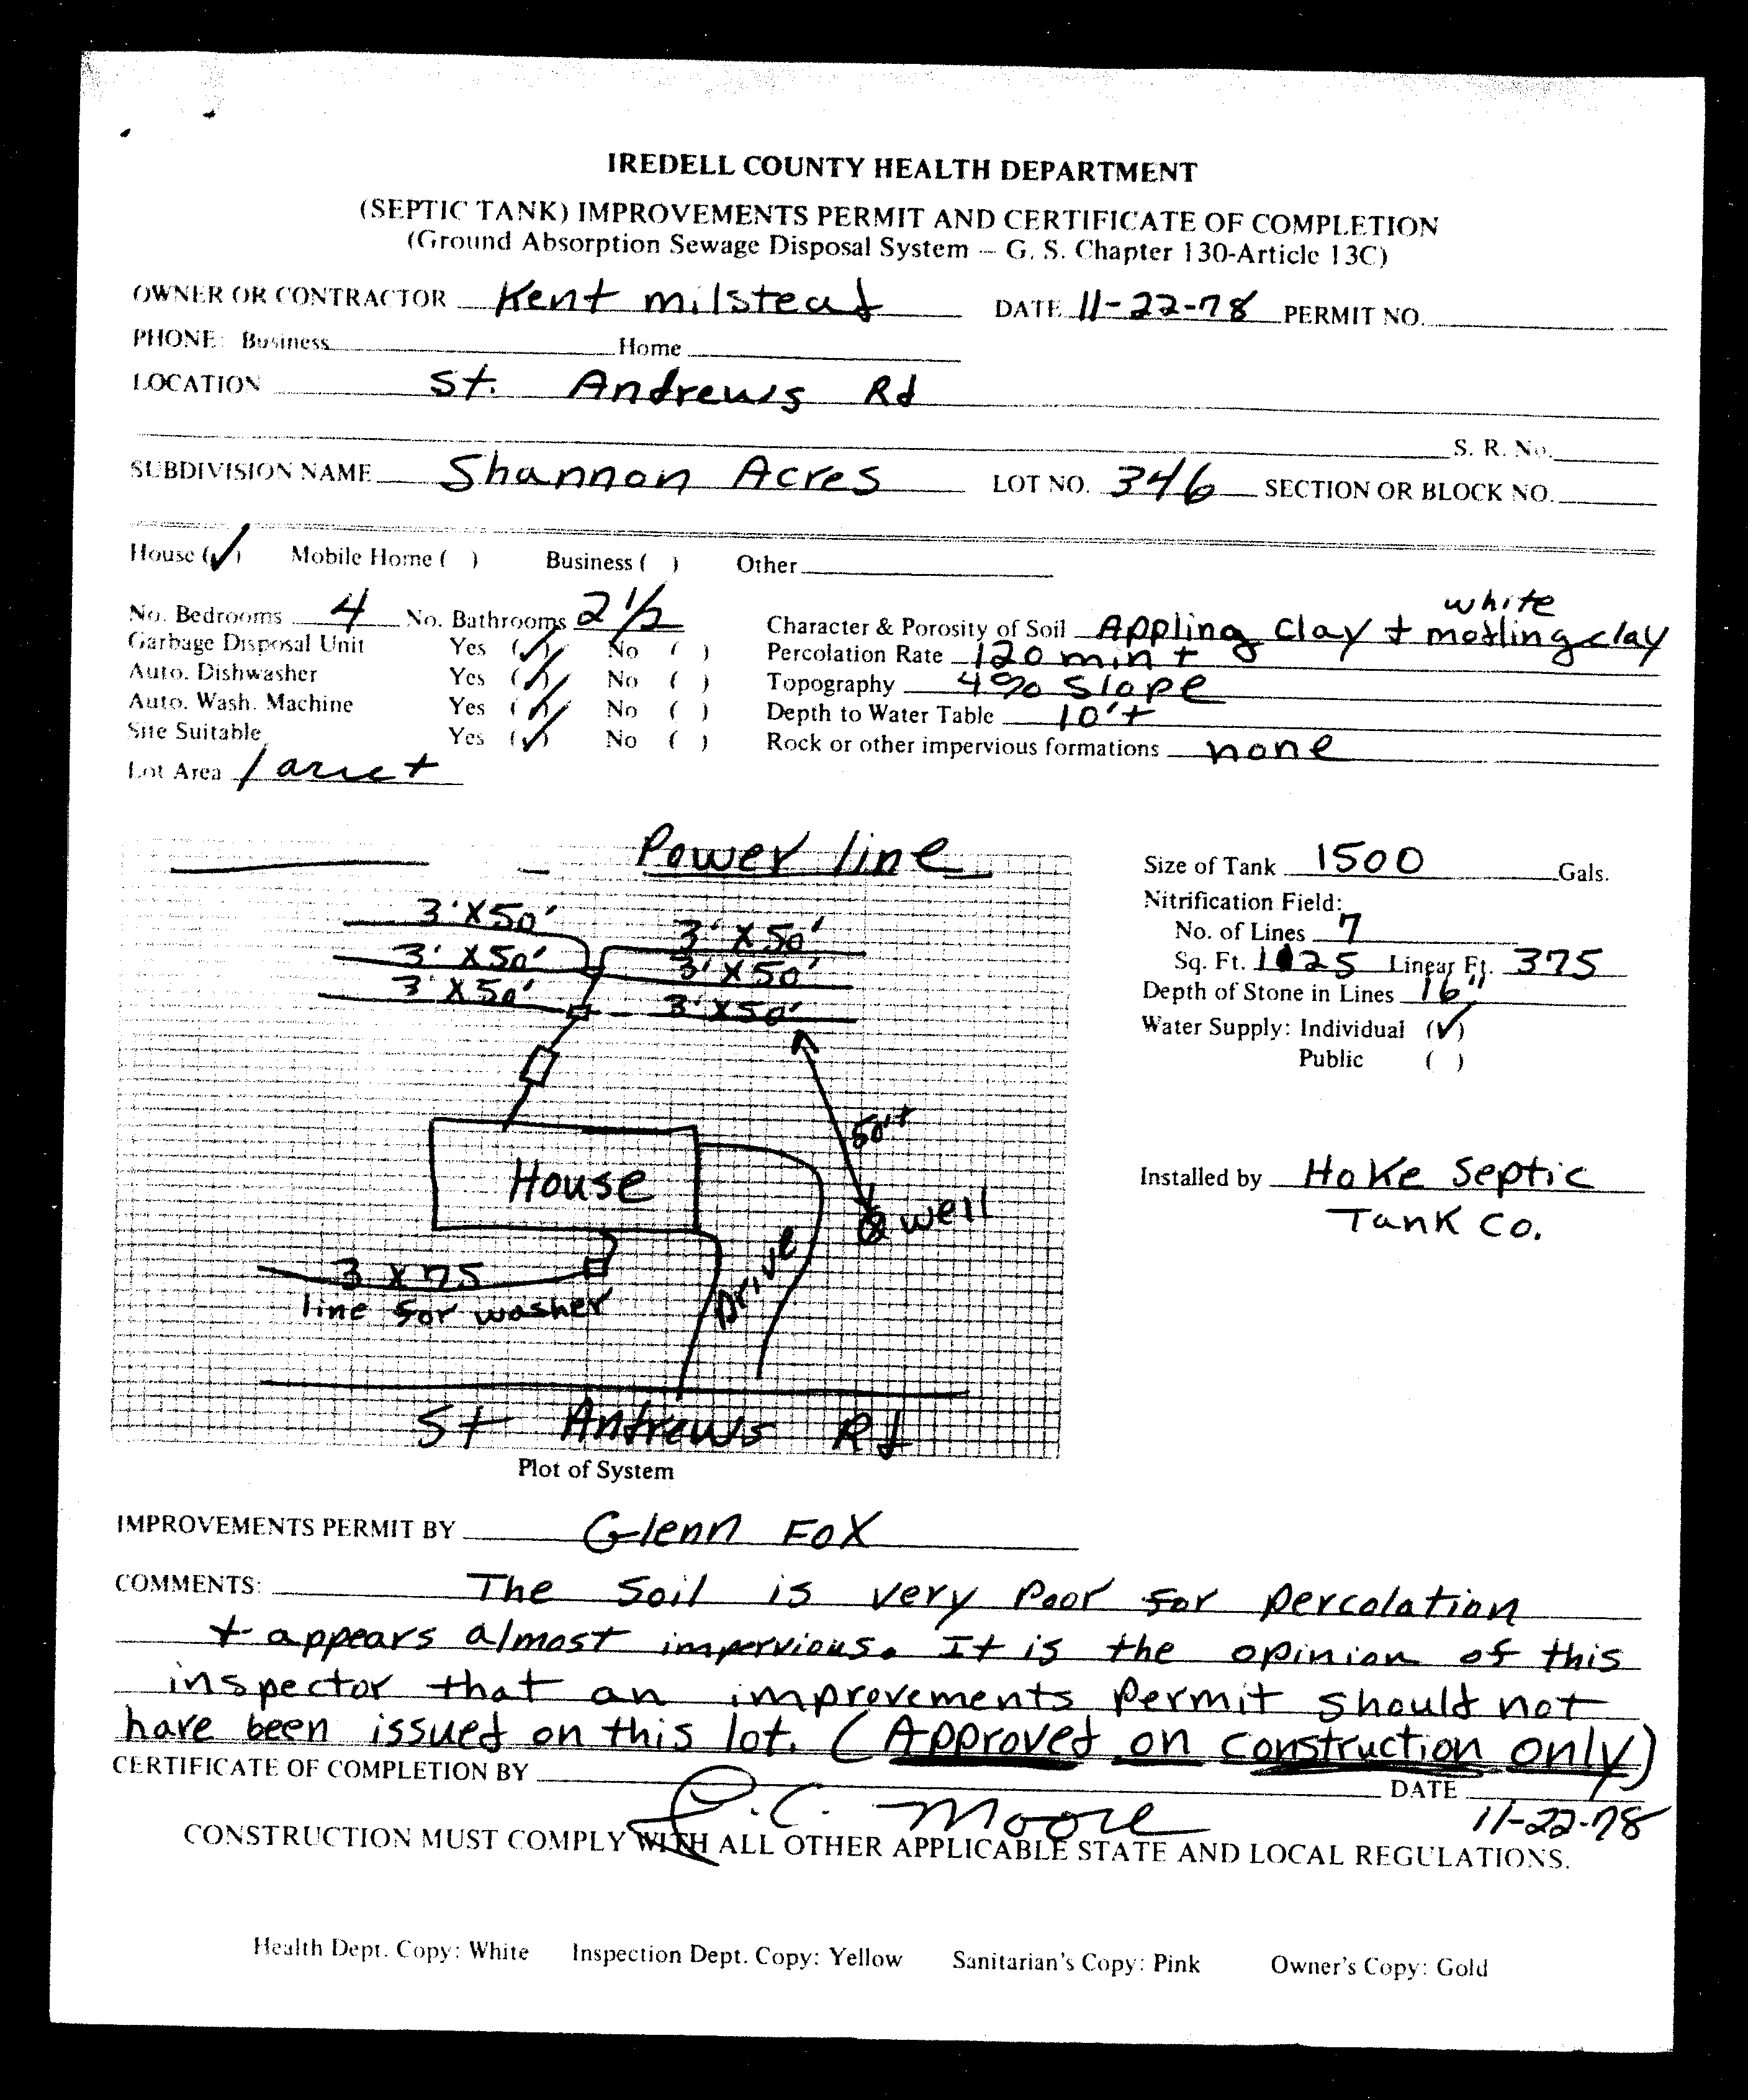 IREDELL COUNTY HEALTH DEPARTMENT
(SEPTIC TANK) IMPROVEMENTS PERMIT AND CERTIFICATE OF COMPLETION
(Ground Absorption Sewage Disposal System – G. S. Chapter 130-Article 13C)
OWNER OR CONTRACTOR Kent milstead DATE 11-22-78 PERMIT NO.
PHONE: Business Home
LOCATION St. Andrews Rd
S. R. No.
SUBDIVISION NAME Shannon Acres LOT NO. 346 SECTION OR BLOCK NO.
House (✓) Mobile Home ( ) Business ( ) Other
white
No. Bedrooms 4 No. Bathrooms 2 1/2 Character & Porosity of Soil Appling clay + motling clay
Garbage Disposal Unit Yes (✓) No ( ) Percolation Rate 120 min +
Auto. Dishwasher Yes (✓) No ( ) Topography 4% Slope
Auto. Wash. Machine Yes (✓) No ( ) Depth to Water Table 10'+
Site Suitable Yes (✓) No ( ) Rock or other impervious formations none
Lot Area 1 acre +
Power line
3' X 50' 3' X 50'
3' X 50' 3' X 50'
3' X 50' 3' X 50'
50'+
House
well
Drive
3 X 75
line for washer
St Andrews Rd
Plot of System
Size of Tank 1500 Gals.
Nitrification Field:
No. of Lines 7
Sq. Ft. 1125 Linear Ft. 375
Depth of Stone in Lines 16"
Water Supply: Individual (✓)
Public ( )
Installed by Hoke Septic
Tank Co.
IMPROVEMENTS PERMIT BY Glenn Fox
COMMENTS: The Soil is very Poor for percolation
+ appears almost impervious. It is the opinion of this
inspector that an improvements Permit should not
have been issued on this lot. (Approved on Construction only)
CERTIFICATE OF COMPLETION BY J.C. Moore DATE 11-22-78
CONSTRUCTION MUST COMPLY WITH ALL OTHER APPLICABLE STATE AND LOCAL REGULATIONS.
Health Dept. Copy: White Inspection Dept. Copy: Yellow Sanitarian's Copy: Pink Owner's Copy: Gold